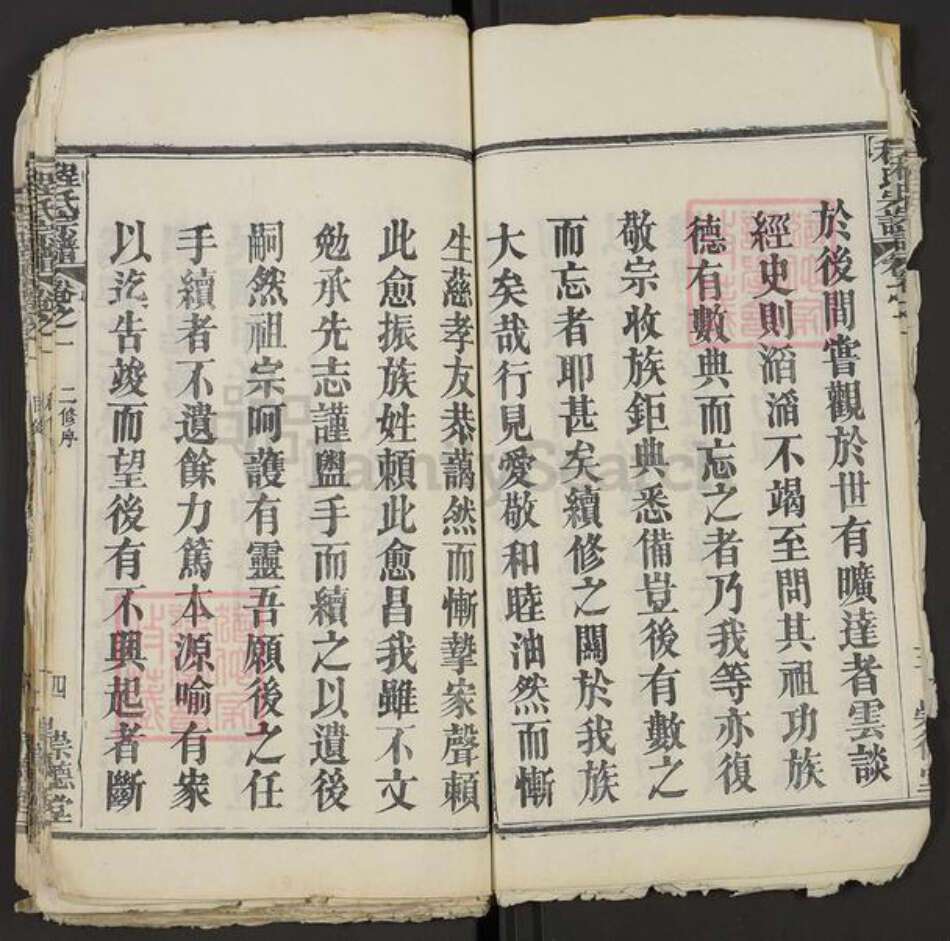 程氏宗譜 卷之一
於後間嘗觀於世有曠達者雲談
經史則滔滔不竭至問其祖功族
德有數典而忘之者乃我等亦復
敬宗收族鉅典悉備豈後有數之
而忘者耶甚矣續修之關於我族
大矣哉行見愛敬和睦油然而慚
生慈孝友恭藹然而慚摯家聲賴
此愈振族姓賴此愈昌我雖不文
勉承先志謹盥手而續之以遺後
嗣然祖宗呵護有靈吾願後之任
手續者不遺餘力篤本源喻有家
以迄告竣而望後有不興起者斷
程氏宗譜 卷之一 二修序 四 崇德堂
FamilySearch